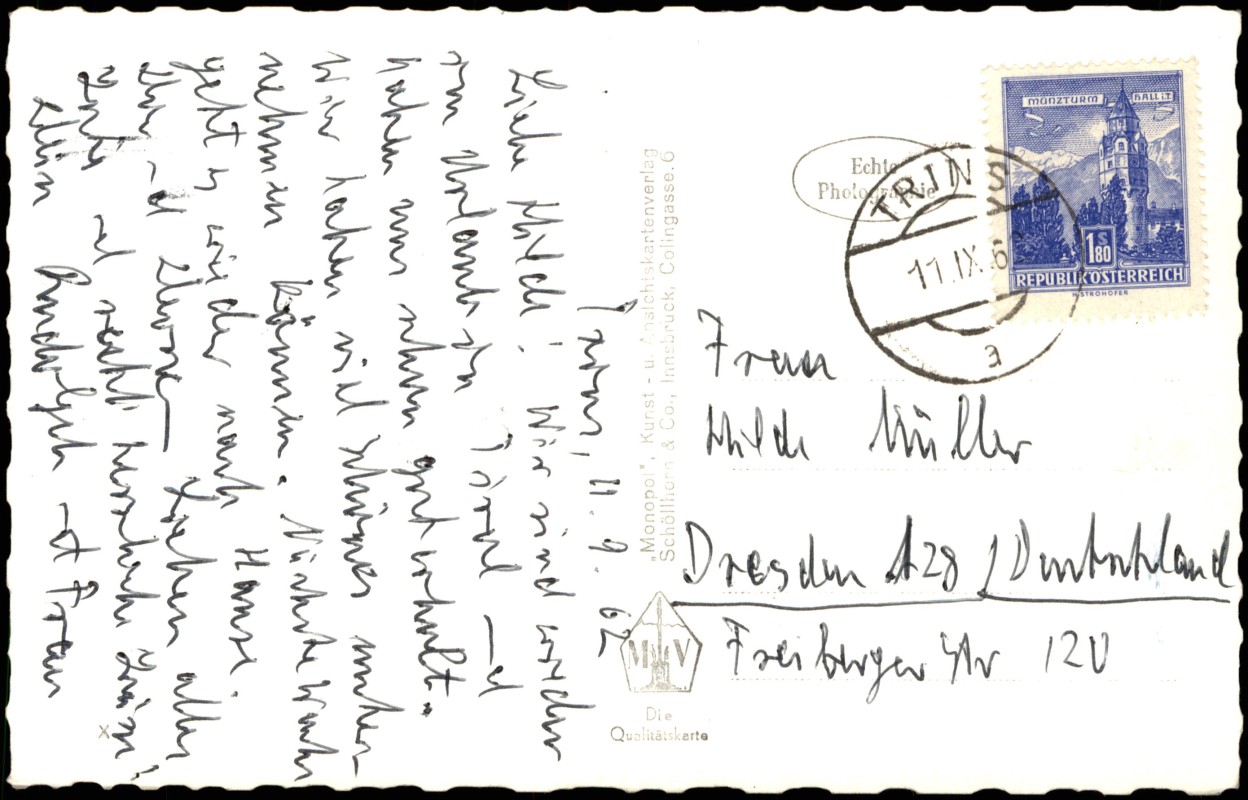 Trins, 11. 9. 62
Liebe Hilde! Wir sind wieder
im Urlaub in Tirol und
haben uns schon gut erholt.
Wir haben viel schönes unter-
nehmen können. Nächste Woche
geht es wieder nach Hause.
Ihr und Deinen Lieben alles
Gute und recht herzliche Grüße
Dein Rudolph und Frau
"Monopol", Kunst- u. Ansichtskartenverlag
Schöllhorn & Co., Innsbruck, Colingasse. 6
MKV
Die
Qualitätskarte
X
Echte
Photographie
TRINS
11.IX.6
a
MÜNZTURM HALL i.T.
1 S 80
REPUBLIK ÖSTERREICH
H. STROHOFER
Frau
Hilde Müller
Dresden A28 / Deutschland
Freiberger Str 120